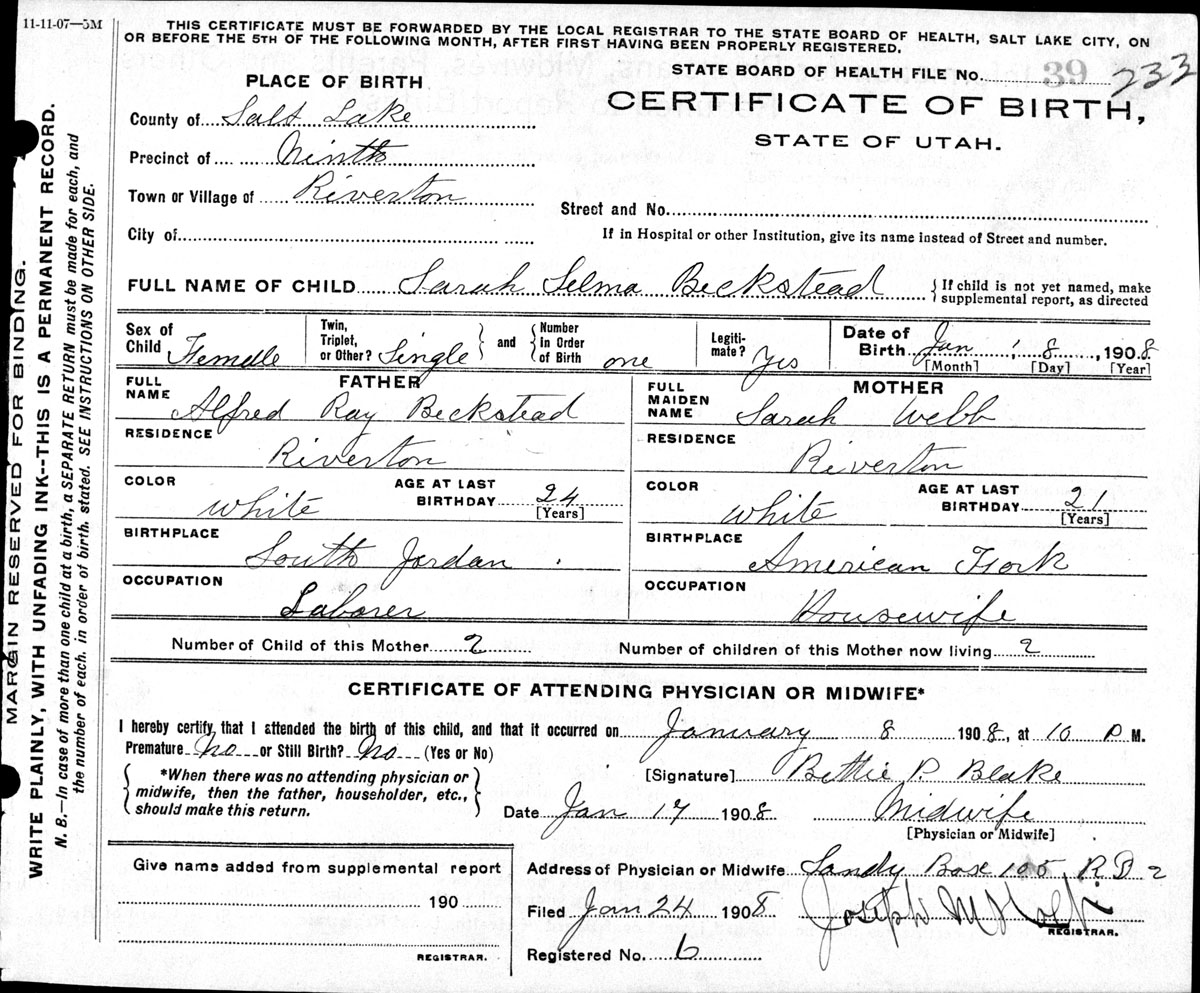 11-11-07—5M
THIS CERTIFICATE MUST BE FORWARDED BY THE LOCAL REGISTRAR TO THE STATE BOARD OF HEALTH, SALT LAKE CITY, ON
OR BEFORE THE 5TH OF THE FOLLOWING MONTH, AFTER FIRST HAVING BEEN PROPERLY REGISTERED.
MARGIN RESERVED FOR BINDING.
WRITE PLAINLY, WITH UNFADING INK--THIS IS A PERMANENT RECORD.
N. B.—In case of more than one child at a birth, a SEPARATE RETURN must be made for each, and
the number of each, in order of birth, stated. SEE INSTRUCTIONS ON OTHER SIDE.
STATE BOARD OF HEALTH FILE No. 39 233
CERTIFICATE OF BIRTH,
STATE OF UTAH.
PLACE OF BIRTH
County of Salt Lake
Precinct of Ninth
Town or Village of Riverton
City of
Street and No.
If in Hospital or other Institution, give its name instead of Street and number.
FULL NAME OF CHILD Sarah Selma Beckstead { If child is not yet named, make
supplemental report, as directed
Sex of Child Female
Twin, Triplet, or Other? Single } and { Number in Order of Birth one
Legiti-mate? Yes
Date of Birth Jan 8, 1908
[Month] [Day] [Year]
FATHER
FULL NAME Alfred Ray Beckstead
RESIDENCE Riverton
COLOR white AGE AT LAST BIRTHDAY 24
[Years]
BIRTHPLACE South Jordan
OCCUPATION Laborer
MOTHER
FULL MAIDEN NAME Sarah Webb
RESIDENCE Riverton
COLOR white AGE AT LAST BIRTHDAY 21
[Years]
BIRTHPLACE American Fork
OCCUPATION Housewife
Number of Child of this Mother 2 Number of children of this Mother now living 2
CERTIFICATE OF ATTENDING PHYSICIAN OR MIDWIFE*
I hereby certify that I attended the birth of this child, and that it occurred on January 8 1908, at 10 P M.
Premature No or Still Birth? No (Yes or No)
{ *When there was no attending physician or
midwife, then the father, householder, etc.,
should make this return. }
[Signature] Bettie P. Blake
Date Jan 17 1908 Midwife
[Physician or Midwife]
Give name added from supplemental report
190
REGISTRAR.
Address of Physician or Midwife Sandy Box 105 R D 2
Filed Jan 24 1908 Joseph M
REGISTRAR.
Registered No. 6